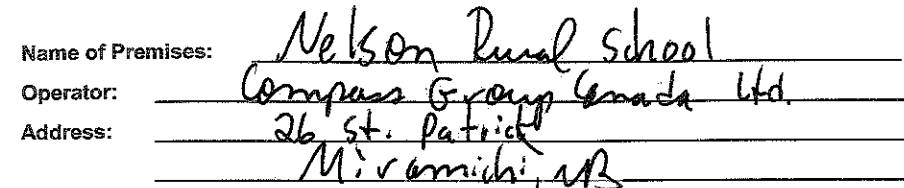 Name of Premises: Nelson Rural School
Operator: Compass Group Canada Ltd.
Address: 26 St. Patrick
Miramichi, NB